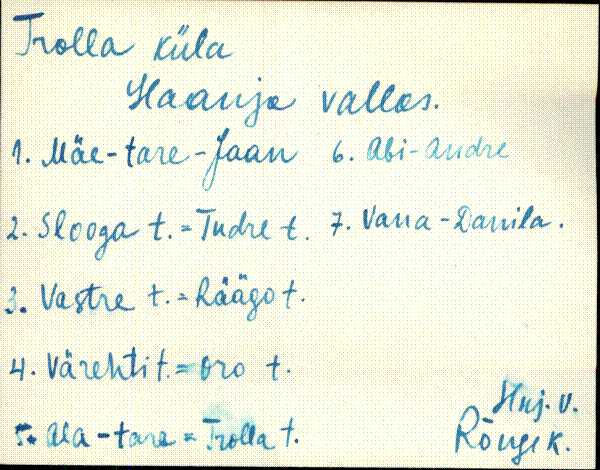 Trolla küla
Haanja vallas.
1. Mäe-tare-Jaan 6. Abi-Andre
2. Slooga t. = Tudre t. 7. Vana-Danila.
3. Vastre t. = Räägo t.
4. Värehti t. = Oro t.
5. Ala-tare = Trolla t.
Hnj. v.
Rõuge k.